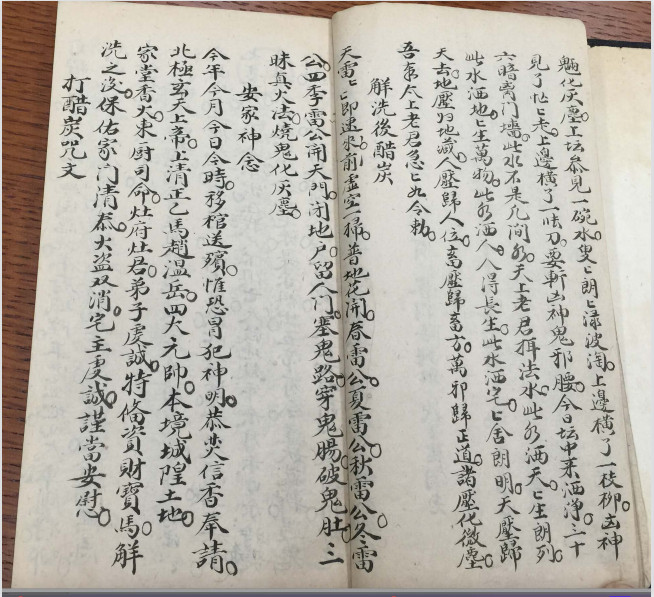 魈化灰塵。上坛叅見一碗水。叟〻朗〻渌波淘。上邊橫了一枝柳。凶神
見了忙〻走。上邊橫了一味刀。要斬凶神鬼邪腰。今日坛中来洒净。三十
六暗奔门墻。此水不是凡间水。天上老君洱法水。此水洒天。天〻生朗列
此水洒地。地〻生萬物。此水洒人。人〻得長生。此水洒宅。宅〻舍朗明。天壓歸
天去。地壓归地藏。人壓歸人位。畜壓歸畜方。萬邪歸正道。諸壓化微塵。
吾奉太上老君急〻如令勅。
解洗後醋炭
天雷〻〻即速来。前虚空一掃。普地花開。春雷公。夏雷公。秋雷公。冬雷
公。四季雷公開天門。闭地户。留人门。塞鬼路。穿鬼腸。破鬼肚。三
昧真火法燒鬼化灰塵。
安家神念
今年今月今日今時。移棺送殯。惟恐冒犯神明。恭焚信香奉請。
北極玄天上帝。上清正乙馬趙温岳四大元帥。本境城隍土地。
家堂香火。東厨司命。灶府灶君。弟子虔誠。特俻資財寶馬。解
洗之没。保佑家门清泰。火盗双消。宅主虔誠。謹當安慰。
打醋炭咒文